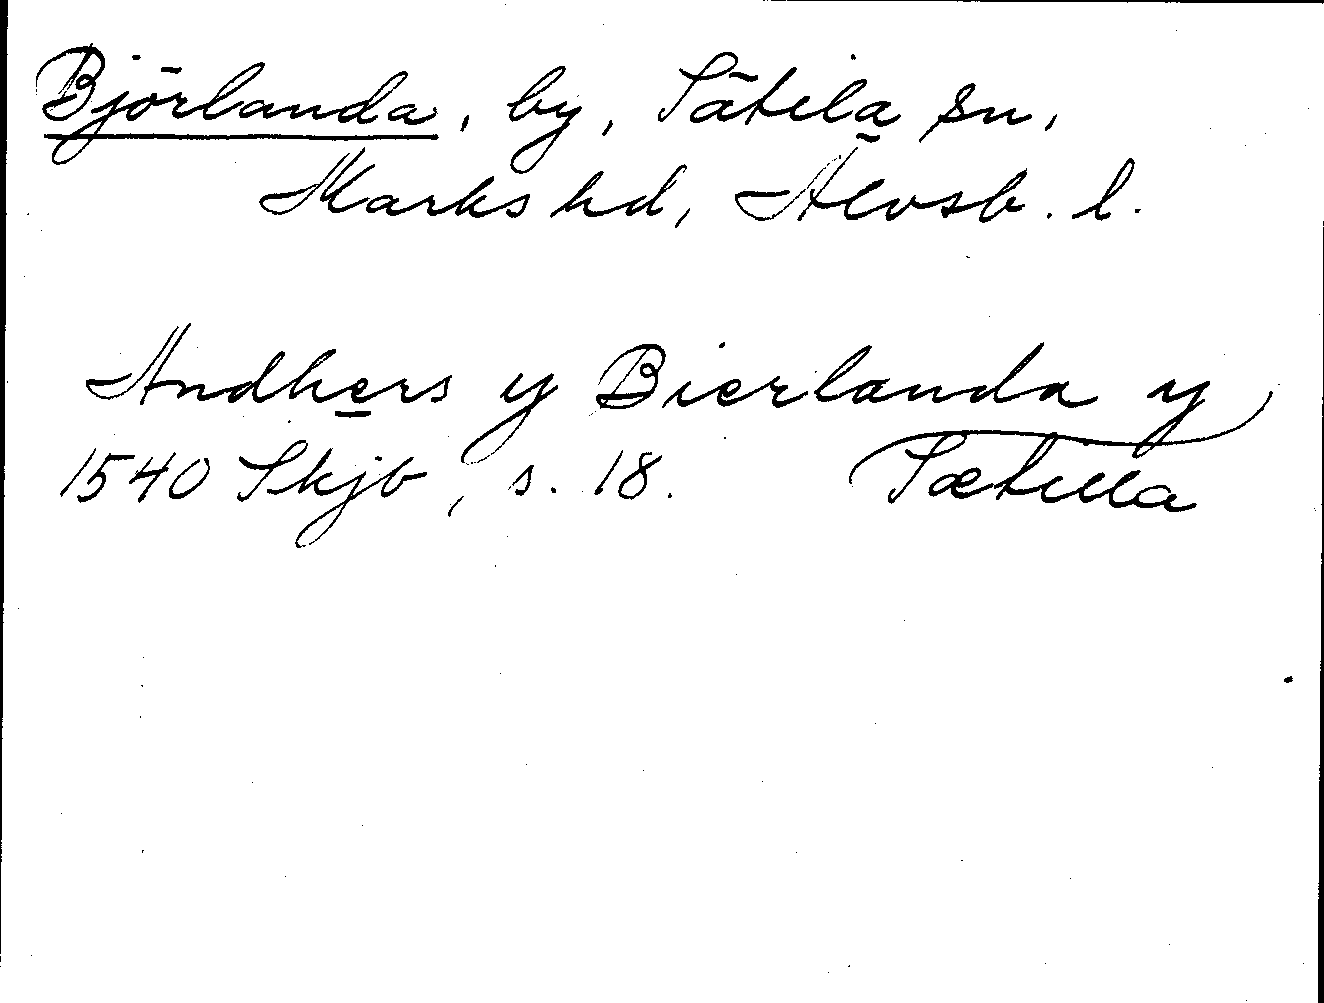 Björlanda, by, Sätila sn,
Marks hd, Älvsb. l.
Andhers y Bierlanda y
Sætilla
1540 Skjb, s. 18.